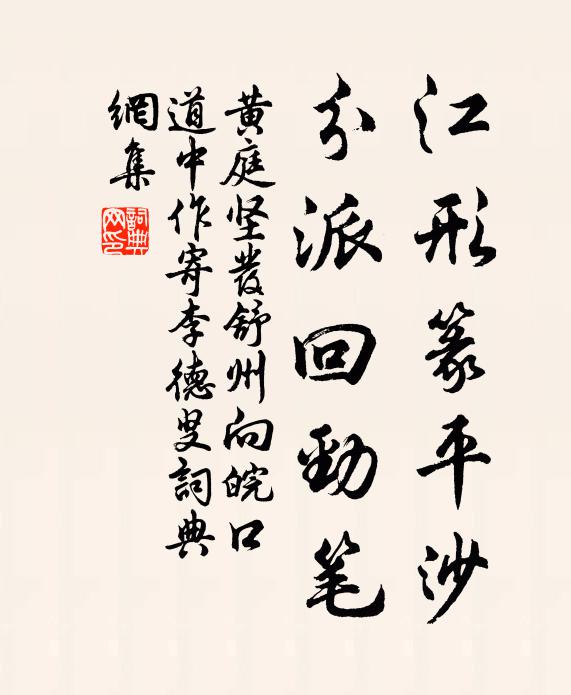 江形篆平沙
分派回勁笔
黄庭坚發舒州向皖口
道中作寄李德叟詞典
網集
詞典
网印